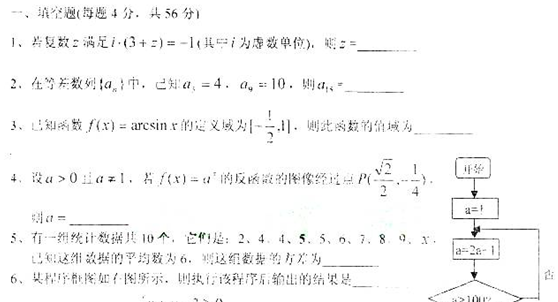 一、填空题(每题 4 分，共 56 分)
1、若复数 z 满足 i·(3+z) = -1 (其中 i 为虚数单位)，则 z = ________
2、在等差数列{aₙ}中，已知 a₃ = 4，a₉ = 10，则 a₁₅ = ________
3、已知函数 f(x) = arcsin x 的定义域为[-1/2,1]，则此函数的值域为________
4、设 a > 0 且 a ≠ 1，若 f(x) = aˣ 的反函数的图像经过点 P(√2/2, -1/4)，
则 a = ________
5、有一组统计数据共 10 个，它们是：2、4、4、5、5、6、7、8、9、x，
已知这组数据的平均数为 6，则这组数据的方差为________
6、某程序框图如右图所示，则执行该程序后输出的结果是________
开始
a=1
a=2a+1
a>100?
否